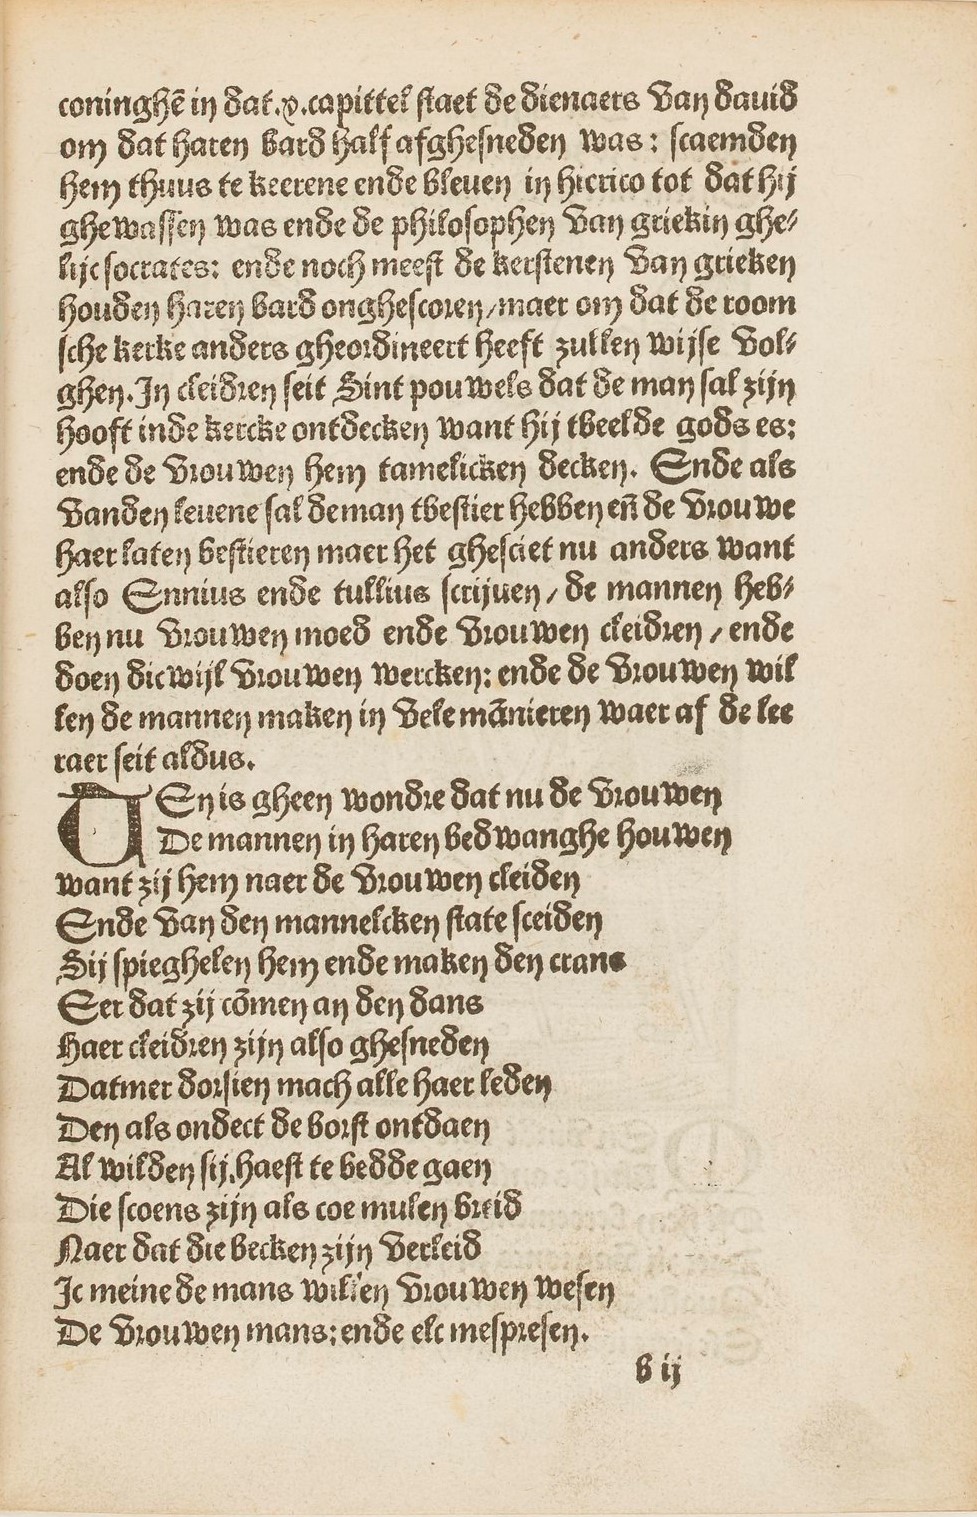 coninghē in dat.x.capittel staet de dienaers van dauid
om dat haren bard half afghesneden was: scaemden
hem thuus te keerene ende bleuen in hierico tot dat hij
ghewassen was ende de philosophen van griekin ghe⸗
lijc socrates: ende noch meest de kerstenen van grieken
houden haren bard onghescoren/maer om dat de room
sche kerke anders gheordineert heeft zullen wijse vol⸗
ghen.In cleidren seit Sint pouwels dat de man sal zijn
hooft inde kercke ontdecken want hij tbeelde gods es:
ende de vrouwen hem tamelicken decken. Ende als
vanden leuene sal deman tbestier hebben eñ de vrouwe
haer laten bestieren maer het ghesciet nu anders want
also Ennius ende tullius scrijuen/ de mannen heb⸗
ben nu vrouwen moed ende vrouwen cleidren/ ende
doen dicwijl vrouwen wercken: ende de vrouwen wil
len de mannen maken in vele mānieren waer af de lee
raer seit aldus.
TEn is gheen wondre dat nu de vrouwen
De mannen in haren bedwanghe houwen
want zij hem naer de vrouwen cleiden
Ende van den mannelcken state sceiden
Sij spieghelen hem ende maken den crans
Eer dat zij cōmen an den dans
Haer cleidren zijn also ghesneden
Datmer dorsien mach alle haer leden
Den als ondect de borst ontdaen
Al wilden sij.haest te bedde gaen
Die scoens zijn als coe mulen breid
Naer dat die becken zijn verleid
Ic meine de mans willen vrouwen wesen
De vrouwen mans: ende elc mespresen.
b ij